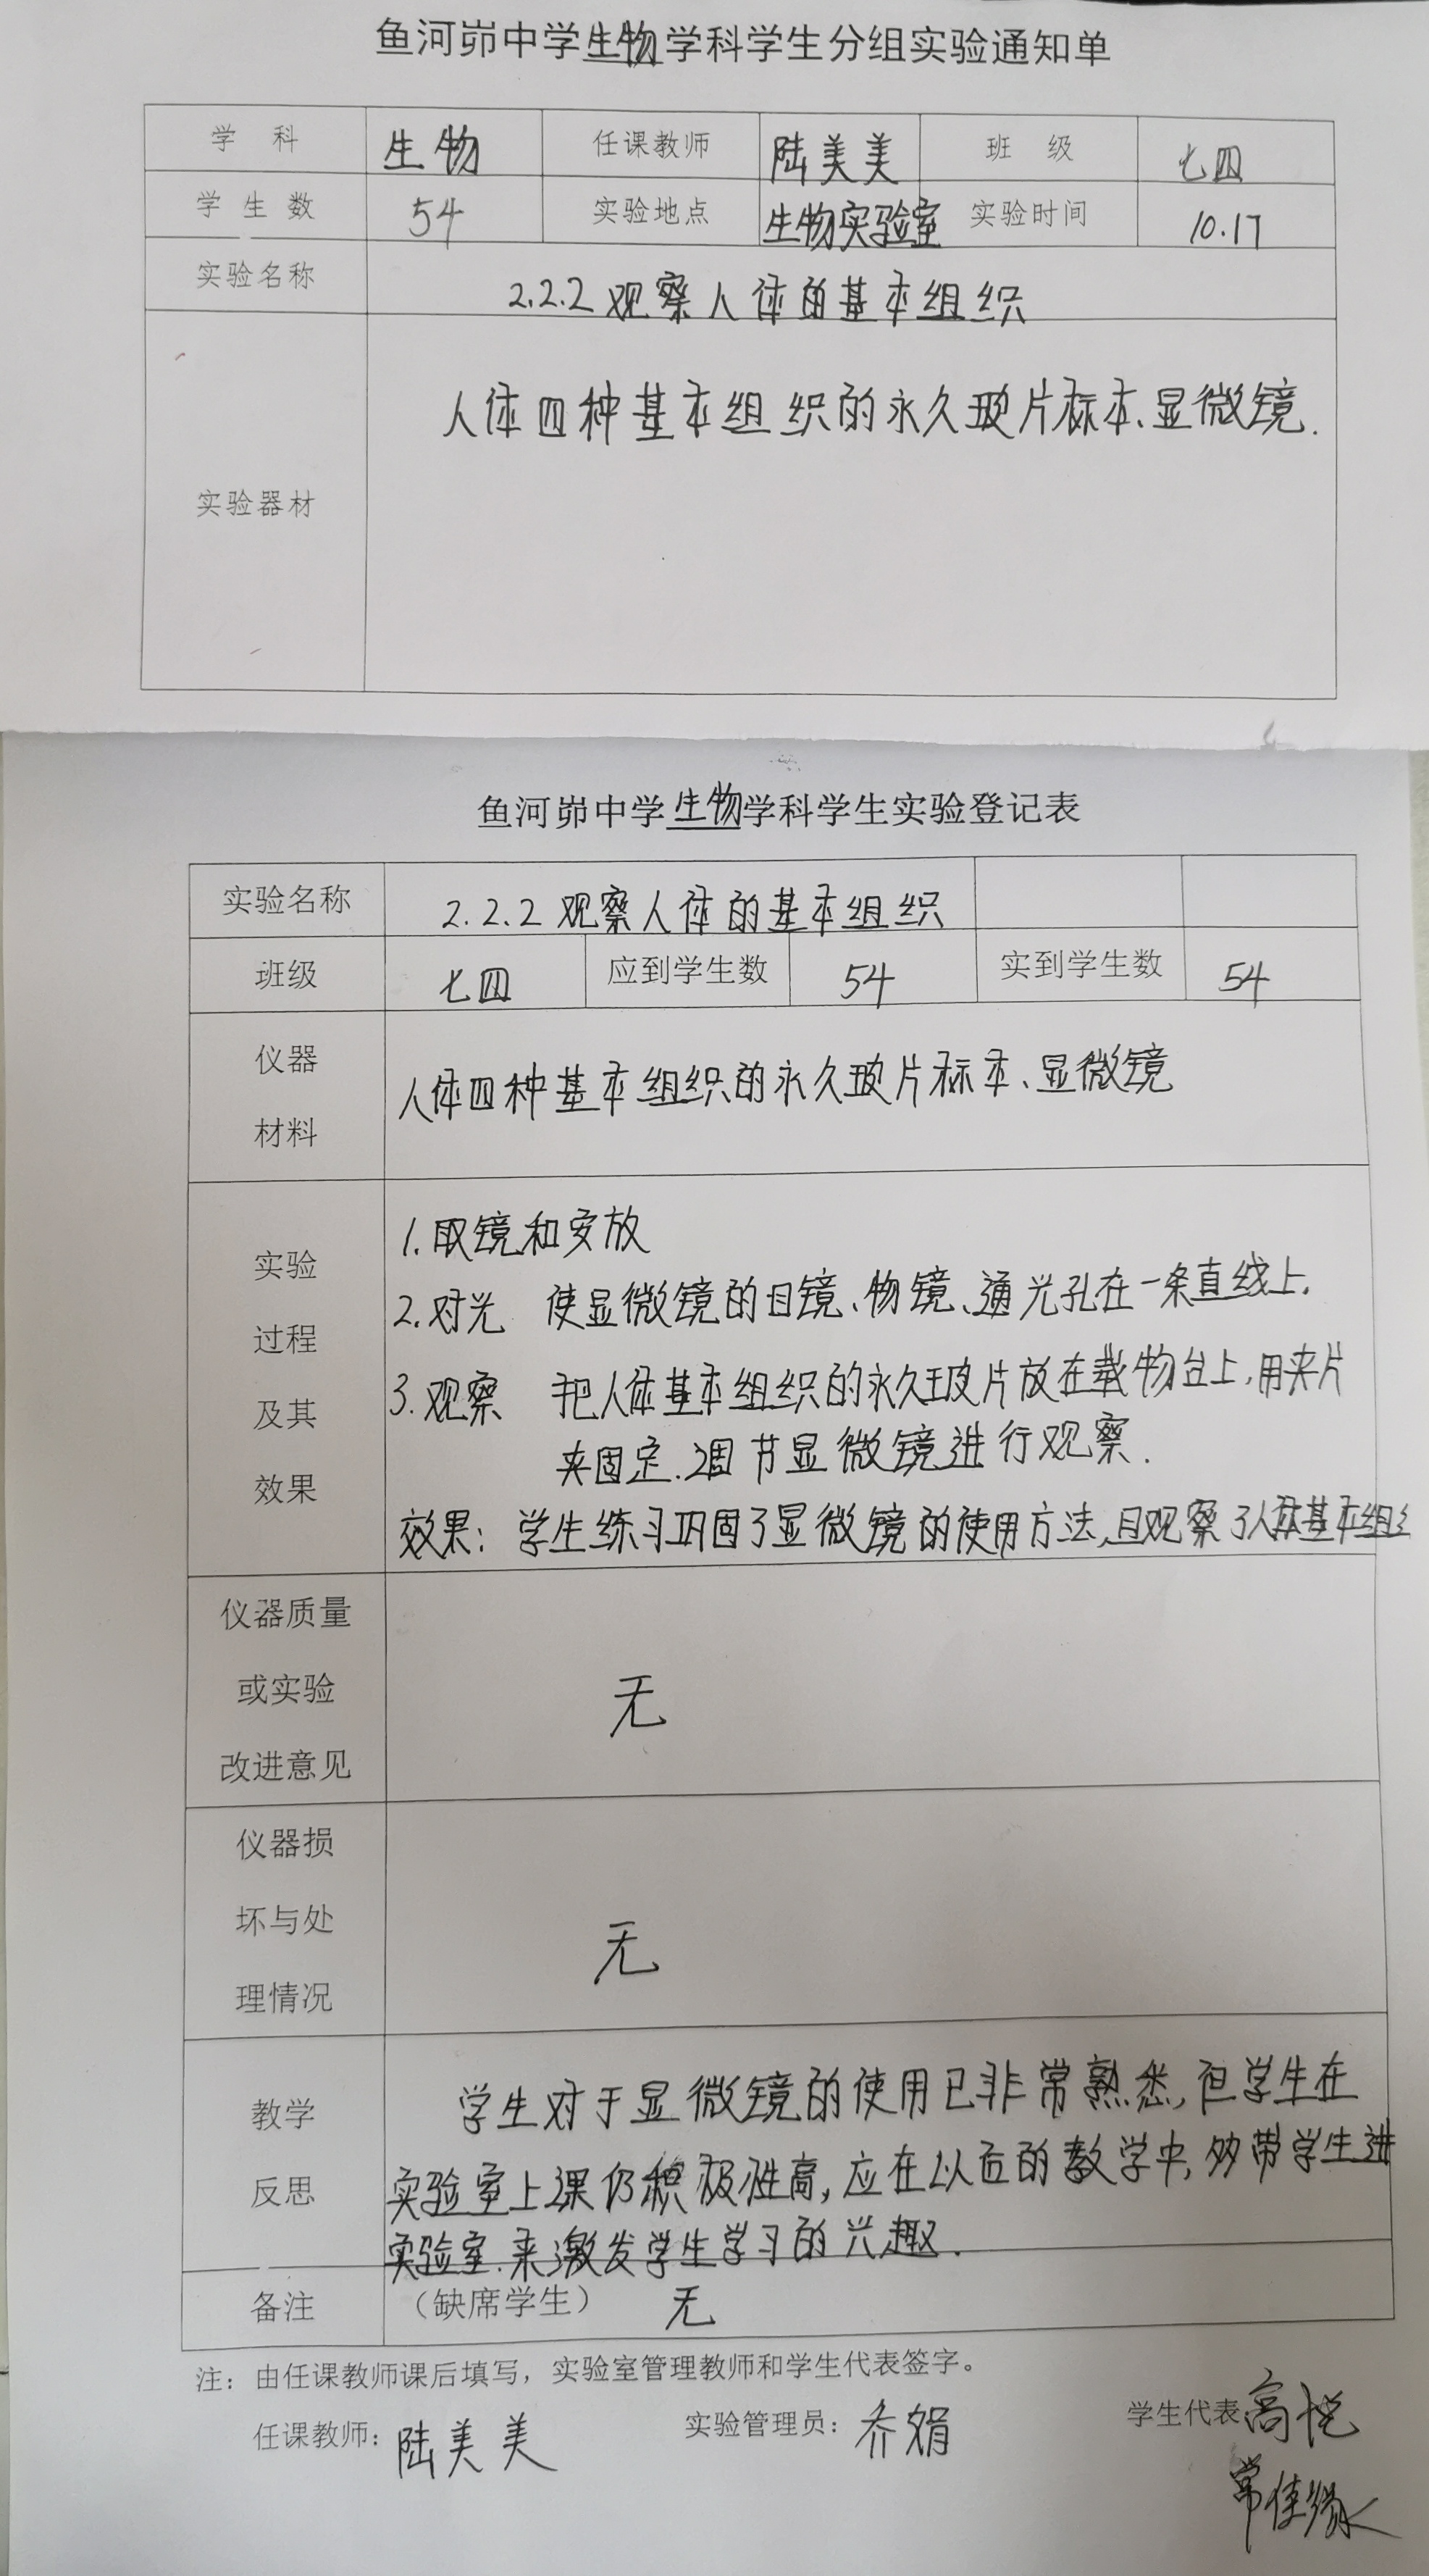 鱼河峁中学生物学科学生分组实验通知单
学 科 生物 任课教师 陆美美 班 级 七四
学 生 数 54 实验地点 生物实验室 实验时间 10.17
实验名称 2.2.2 观察人体的基本组织
人体四种基本组织的永久玻片标本、显微镜.
实验器材
鱼河峁中学生物学科学生实验登记表
实验名称 2.2.2 观察人体的基本组织
班级 七四 应到学生数 54 实到学生数 54
仪器
材料
人体四种基本组织的永久玻片标本、显微镜
实验
过程
及其
效果
1. 取镜和安放
2. 对光 使显微镜的目镜、物镜、通光孔在一条直线上.
3. 观察 把人体基本组织的永久玻片放在载物台上,用夹片
夹固定.调节显微镜进行观察.
效果: 学生练习巩固了显微镜的使用方法,且观察了人体基本组
仪器质量
或实验
改进意见
无
仪器损
坏与处
理情况
无
教学
反思
学生对于显微镜的使用已非常熟悉,但学生在
实验室上课仍积极性高,应在以后的教学中,多带学生进
实验室.来激发学生学习的兴趣.
备注 (缺席学生) 无
注: 由任课教师课后填写,实验室管理教师和学生代表签字。
任课教师: 陆美美 实验管理员: 乔娟 学生代表 高悦
常佳缘